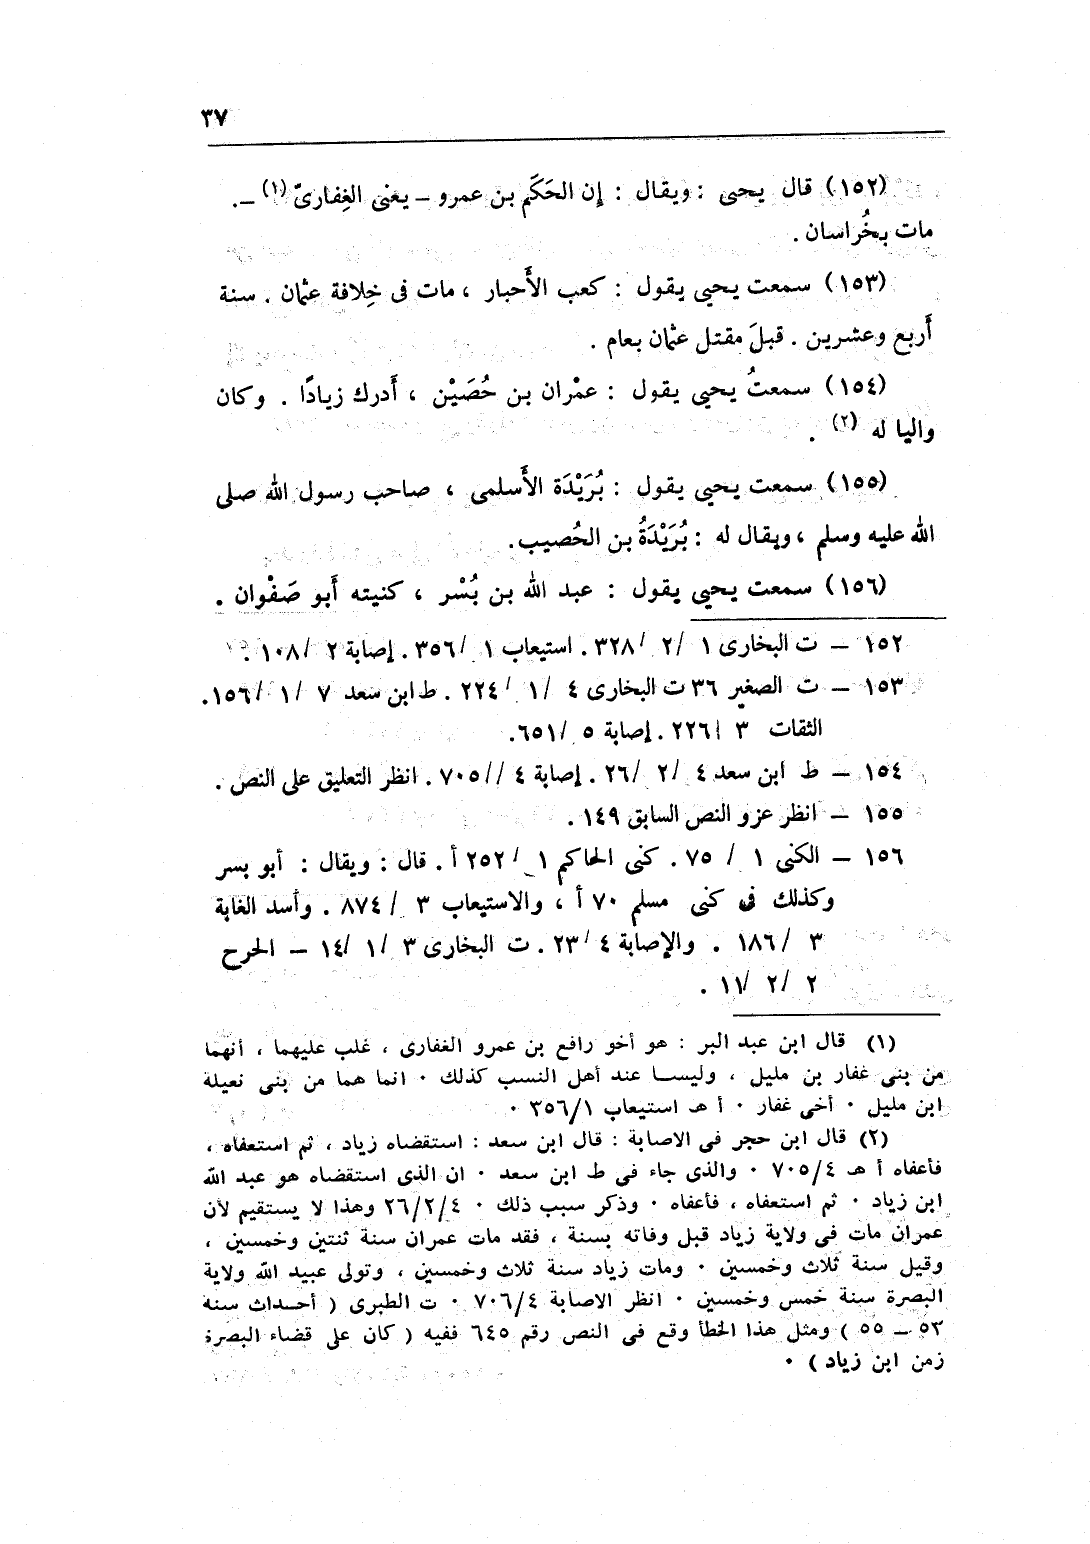 ٣٧
(١٥٢) قال يحيى : ويقال : إن الحَكَم بن عمرو – يعنى الغِفارىّ (١) –.
مات بخُراسان .
(١٥٣) سمعت يحيى يقول : كعب الأَحبار ، مات فى خِلافة عثمان . سنة
أَربع وعشرين . قبلَ مقتل عثمان بعام .
(١٥٤) سمعتُ يحيى يقول : عمْران بن حُصَيْن ، أَدرك زيادًا . وكان
واليا له (٢) .
(١٥٥) سمعت يحيى يقول : بُرَيْدَة الأَسلمى ، صاحب رسول الله صلى
الله عليه وسلم ، ويقال له : بُرَيْدَةُ بن الحُصيب.
(١٥٦) سمعت يحيى يقول : عبد الله بن بُسْر ، كنيته أَبو صَفْوان .
١٥٢ – ت البخارى ١ /٢ /٣٢٨. استيعاب ١ /٣٥٦. إصابة ٢ /١٠٨ .
١٥٣ – ت الصغير ٣٦ ت البخارى ٤ /١ /٢٢٤ . ط ابن سعد ٧ /١ /١٥٦.
الثقات ٣ /٢٢٦. إصابة ٥ /٦٥١.
١٥٤ – ط ابن سعد ٤ /٢ /٢٦ . إصابة ٤ //٧٠٥ . انظر التعليق على النص .
١٥٥ – انظر عزو النص السابق ١٤٩ .
١٥٦ – الكنى ١ / ٧٥. كنى الحاكم ١ /٢٥٢ أ. قال : ويقال : أبو بسر
وكذلك فى كنى مسلم ٧٠ أ ، والاستيعاب ٣ /٨٧٤ . وأسد الغابة
٣ /١٨٦ . والإصابة ٤ /٢٣. ت البخارى ٣ /١ /١٤ – الجرح
٢ /٢ /١١ .
(١) قال ابن عبد البر : هو أخو رافع بن عمرو الغفارى ، غلب عليهما ، أنهما
من بنى غفار بن مليل ، وليسا عند أهل النسب كذلك ٠ انما هما من بنى نعيلة
ابن مليل ٠ أخى غفار ٠ أ هـ استيعاب ٣٥٦/١ ٠
(٢) قال ابن حجر فى الاصابة : قال ابن سعد : استقضاه زياد ، ثم استعفاه ،
فأعفاه أ هـ ٧٠٥/٤ ٠ والذى جاء فى ط ابن سعد ٠ ان الذى استقضاه هو عبد الله
ابن زياد ٠ ثم استعفاه ، فأعفاه ٠ وذكر سبب ذلك ٠ ٢٦/٢/٤ وهذا لا يستقيم لأن
عمران مات فى ولاية زياد قبل وفاته بسنة ، فقد مات عمران سنة ثنتين وخمسين ،
وقيل سنة ثلاث وخمسين ٠ ومات زياد سنة ثلاث وخمسين ، وتولى عبيد الله ولاية
البصرة سنة خمس وخمسين ٠ انظر الاصابة ٧٠٦/٤ ٠ ت الطبرى ( أحداث سنة
٥٣ – ٥٥ ) ومثل هذا الخطأ وقع فى النص رقم ٦٤٥ ففيه ( كان على قضاء البصرة
زمن ابن زياد ) ٠